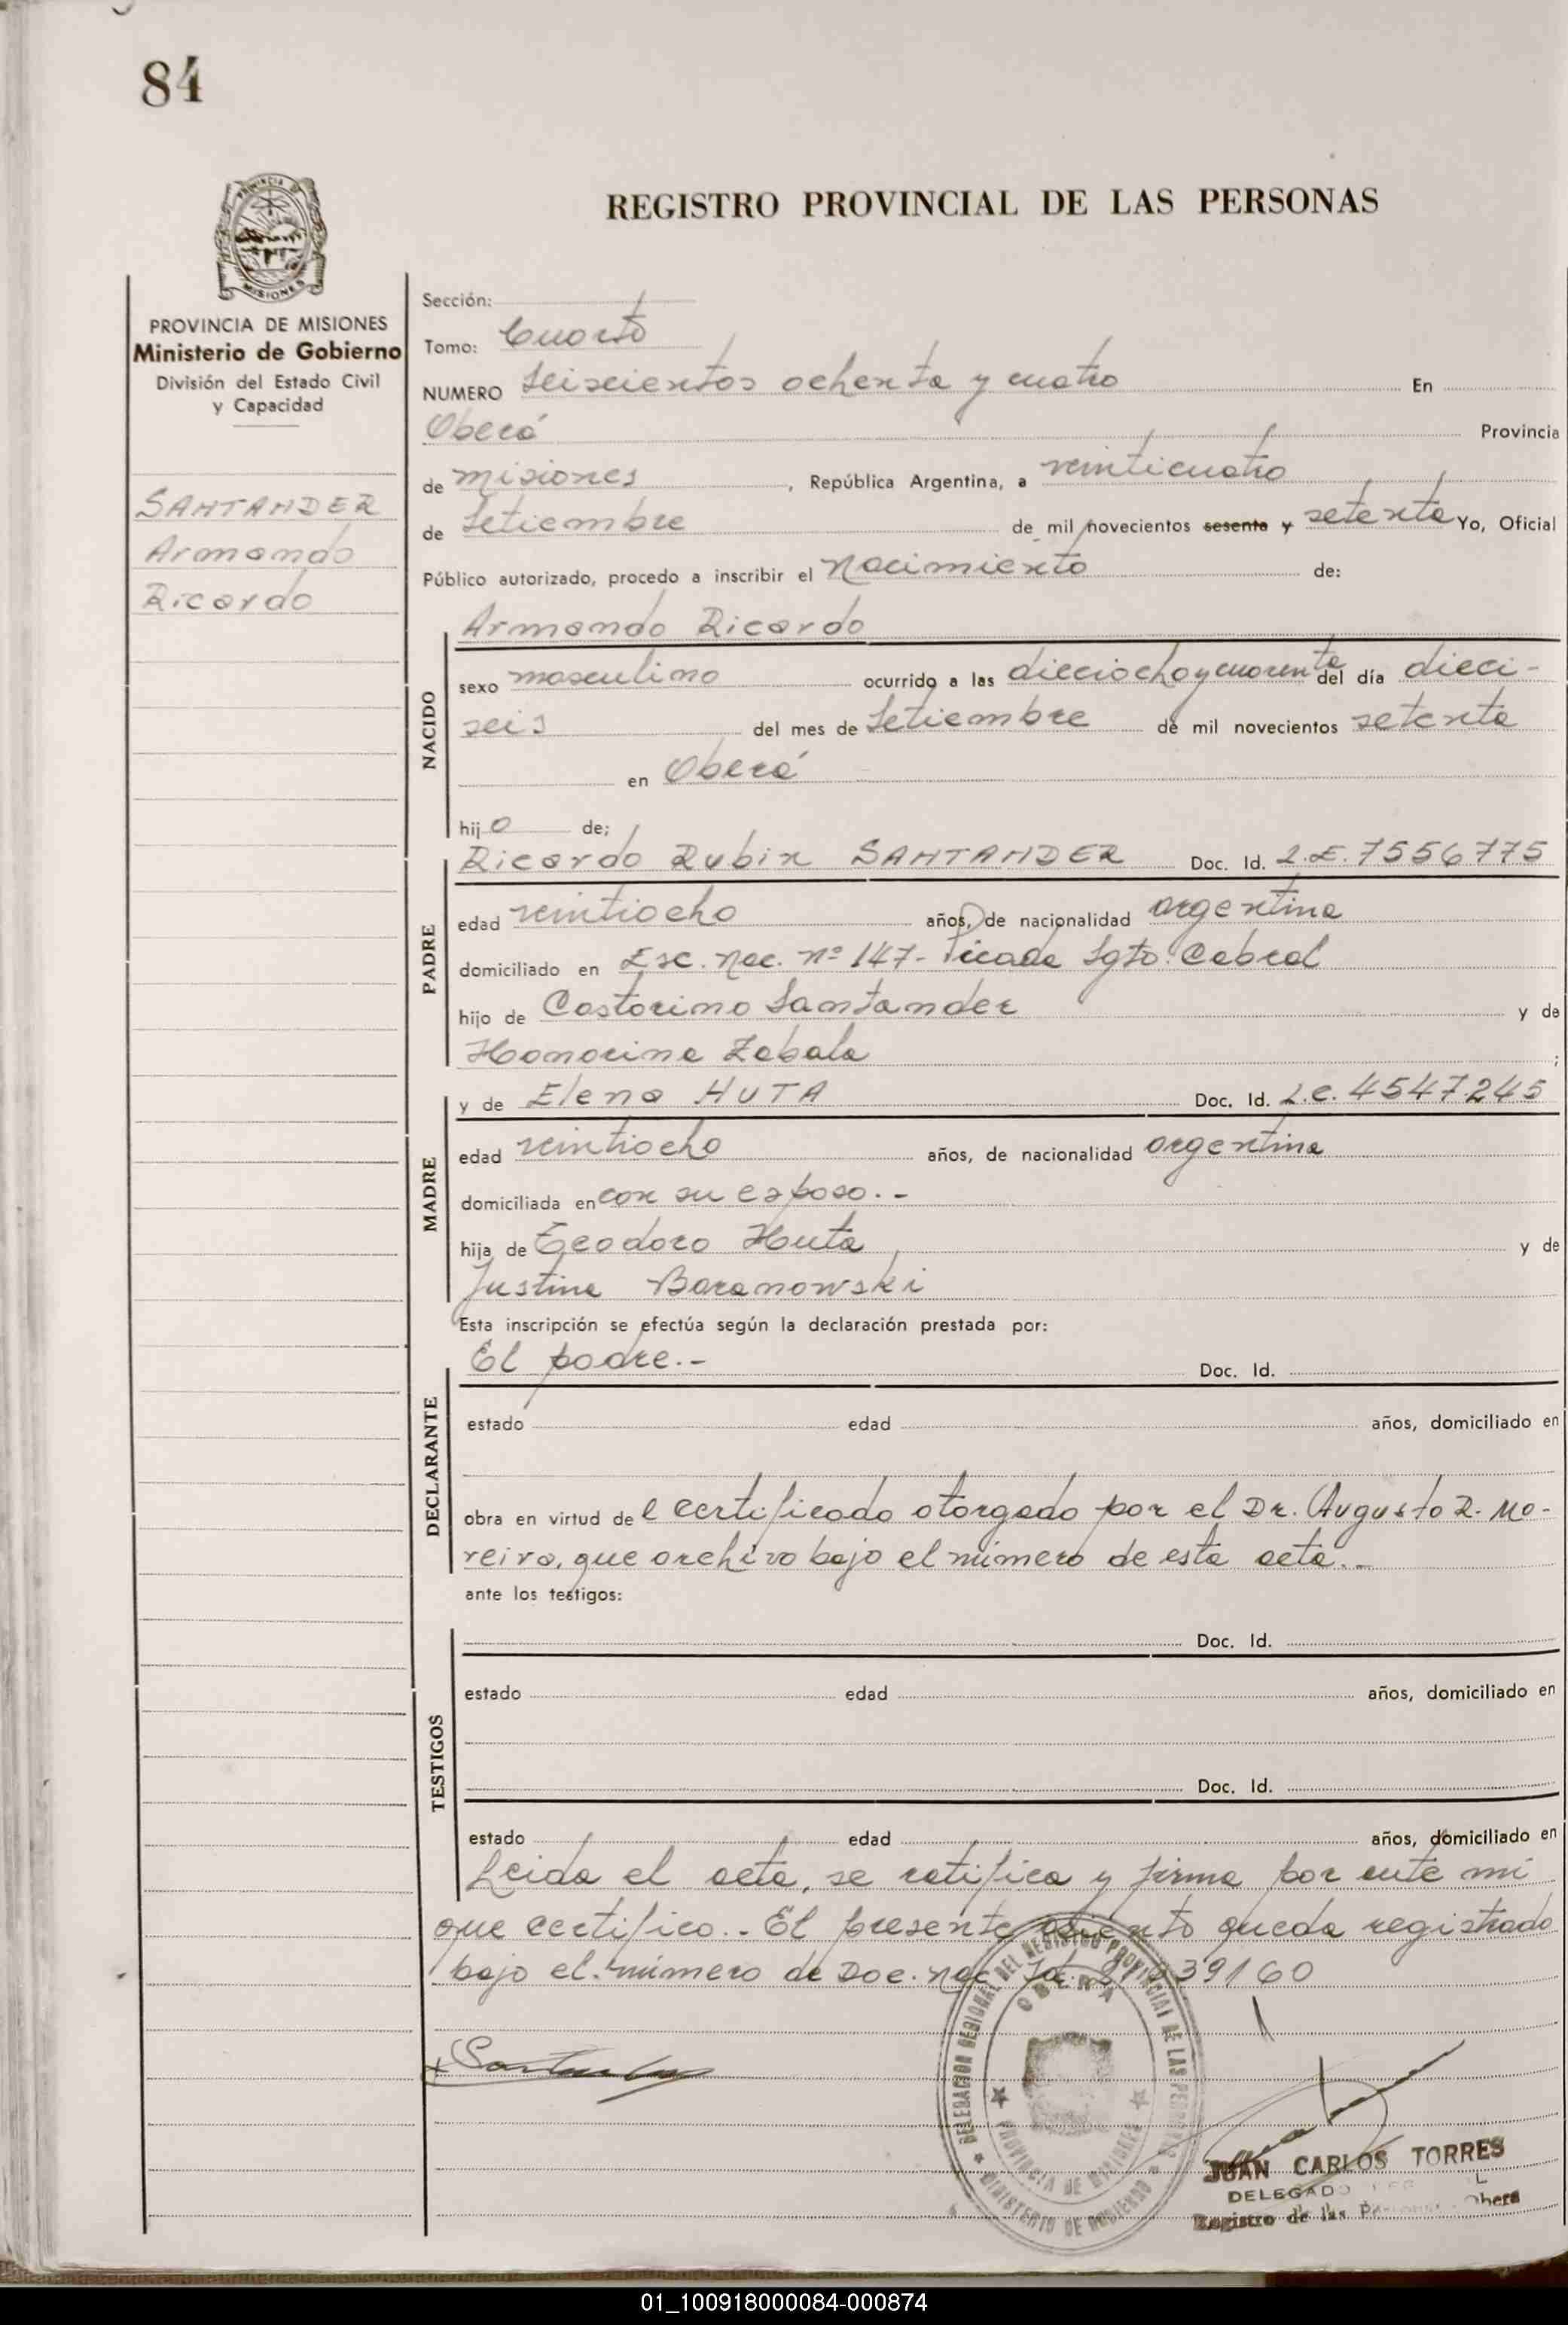 84
PROVINCIA DE
MISIONES
REGISTRO PROVINCIAL DE LAS PERSONAS
PROVINCIA DE MISIONES
Ministerio de Gobierno
División del Estado Civil
y Capacidad
SANTANDER
Armando
Ricardo
Sección:
Tomo: Cuarto
NUMERO Seiscientos ochenta y cuatro En
Oberá Provincia
de misiones, República Argentina, a veinticuatro
de Setiembre de mil novecientos sesenta y setenta Yo, Oficial
Público autorizado, procedo a inscribir el Nacimiento de:
Armando Ricardo
NACIDO
sexo masculino ocurrido a las dieciocho y cuarenta del día dieci-
seis del mes de Setiembre de mil novecientos setenta
en Oberá
hijo de;
PADRE
Ricardo Rubin SANTANDER Doc. Id. L.E. 7556775
edad veintiocho años, de nacionalidad argentina
domiciliado en Esc. Nac. nº 147- Picada Sgto. Cabral
hijo de Castorino Santander y de
Honorina Zabala ;
MADRE
y de Elena HUTA Doc. Id. L.C. 4547245
edad veintiocho años, de nacionalidad argentina
domiciliada en con su esposo.-
hija de Teodoro Huta y de
Justina Baranowski
Esta inscripción se efectúa según la declaración prestada por:
DECLARANTE
El padre.- Doc. Id.
estado edad años, domiciliado en
obra en virtud del certificado otorgado por el Dr. Augusto R. Mo-
reira, que archivo bajo el número de esta acta.-
ante los testigos:
TESTIGOS
Doc. Id.
estado edad años, domiciliado en
Doc. Id.
estado edad años, domiciliado en
Leida el acta, se ratifica y firma por ante mi
que certifico.- El presente asiento queda registrado
bajo el número de Doc. Nac. Id. 39160
DELEGACION REGIONAL DEL REGISTRO PROVINCIAL DE LAS PERSONAS
OBERA
PROVINCIA DE MISIONES
MINISTERIO DE GOBIERNO
JUAN CARLOS TORRES
DELEGADO
Registro de las Obera
01_100918000084-000874